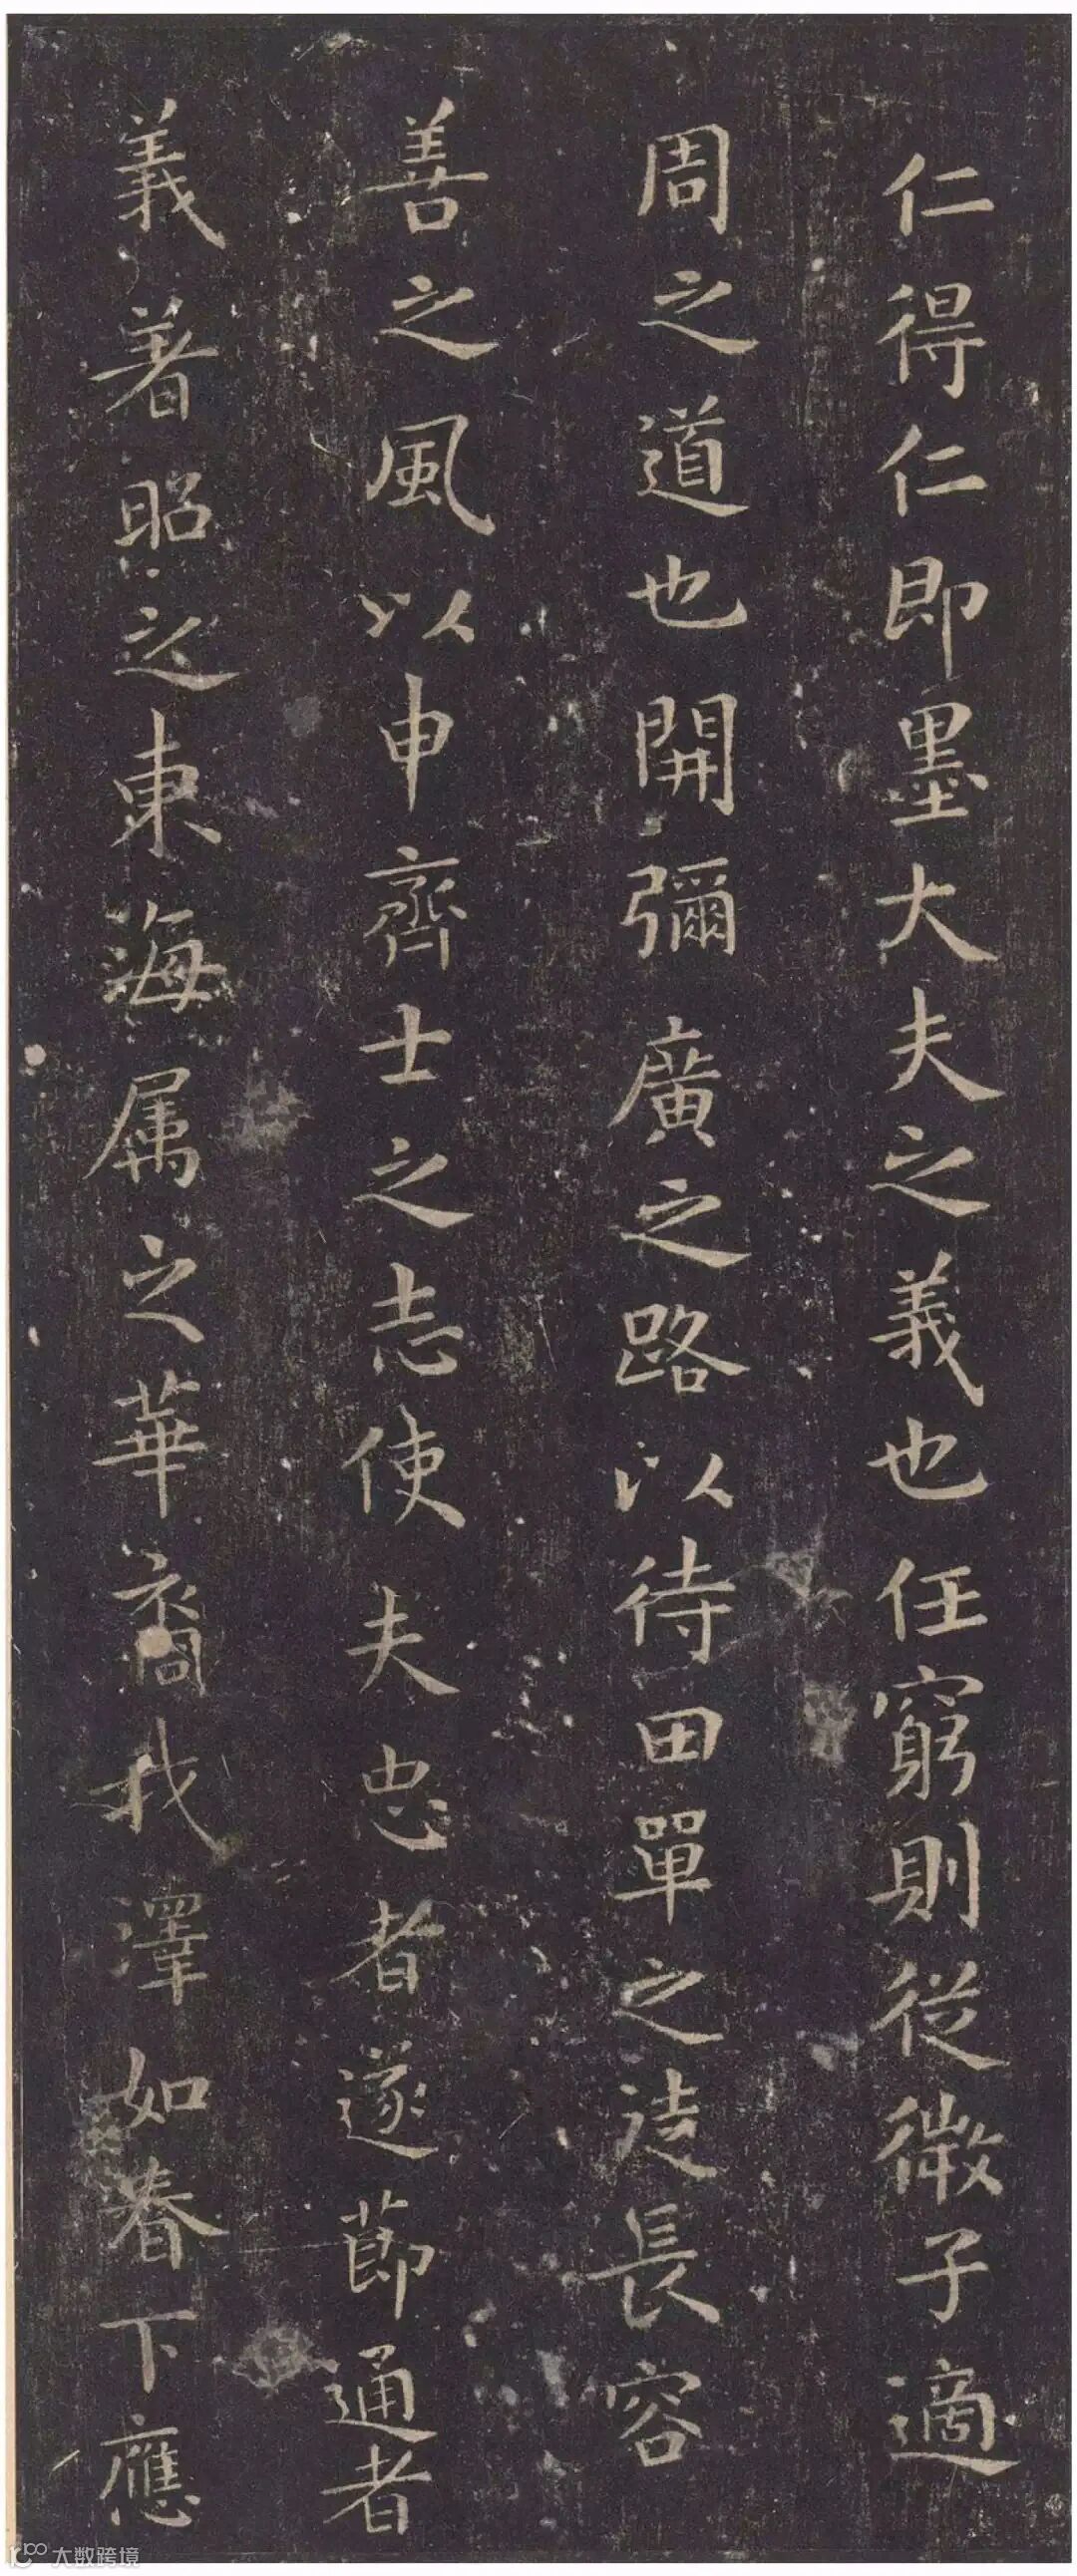 仁得仁即墨大夫之義也任窮則従微子適
周之道也開彌廣之路以待田單之徒長容
善之風以申齊士之志使夫忠者遂節通者
義著昭之東海属之華裔我澤如春下應
大数跨境